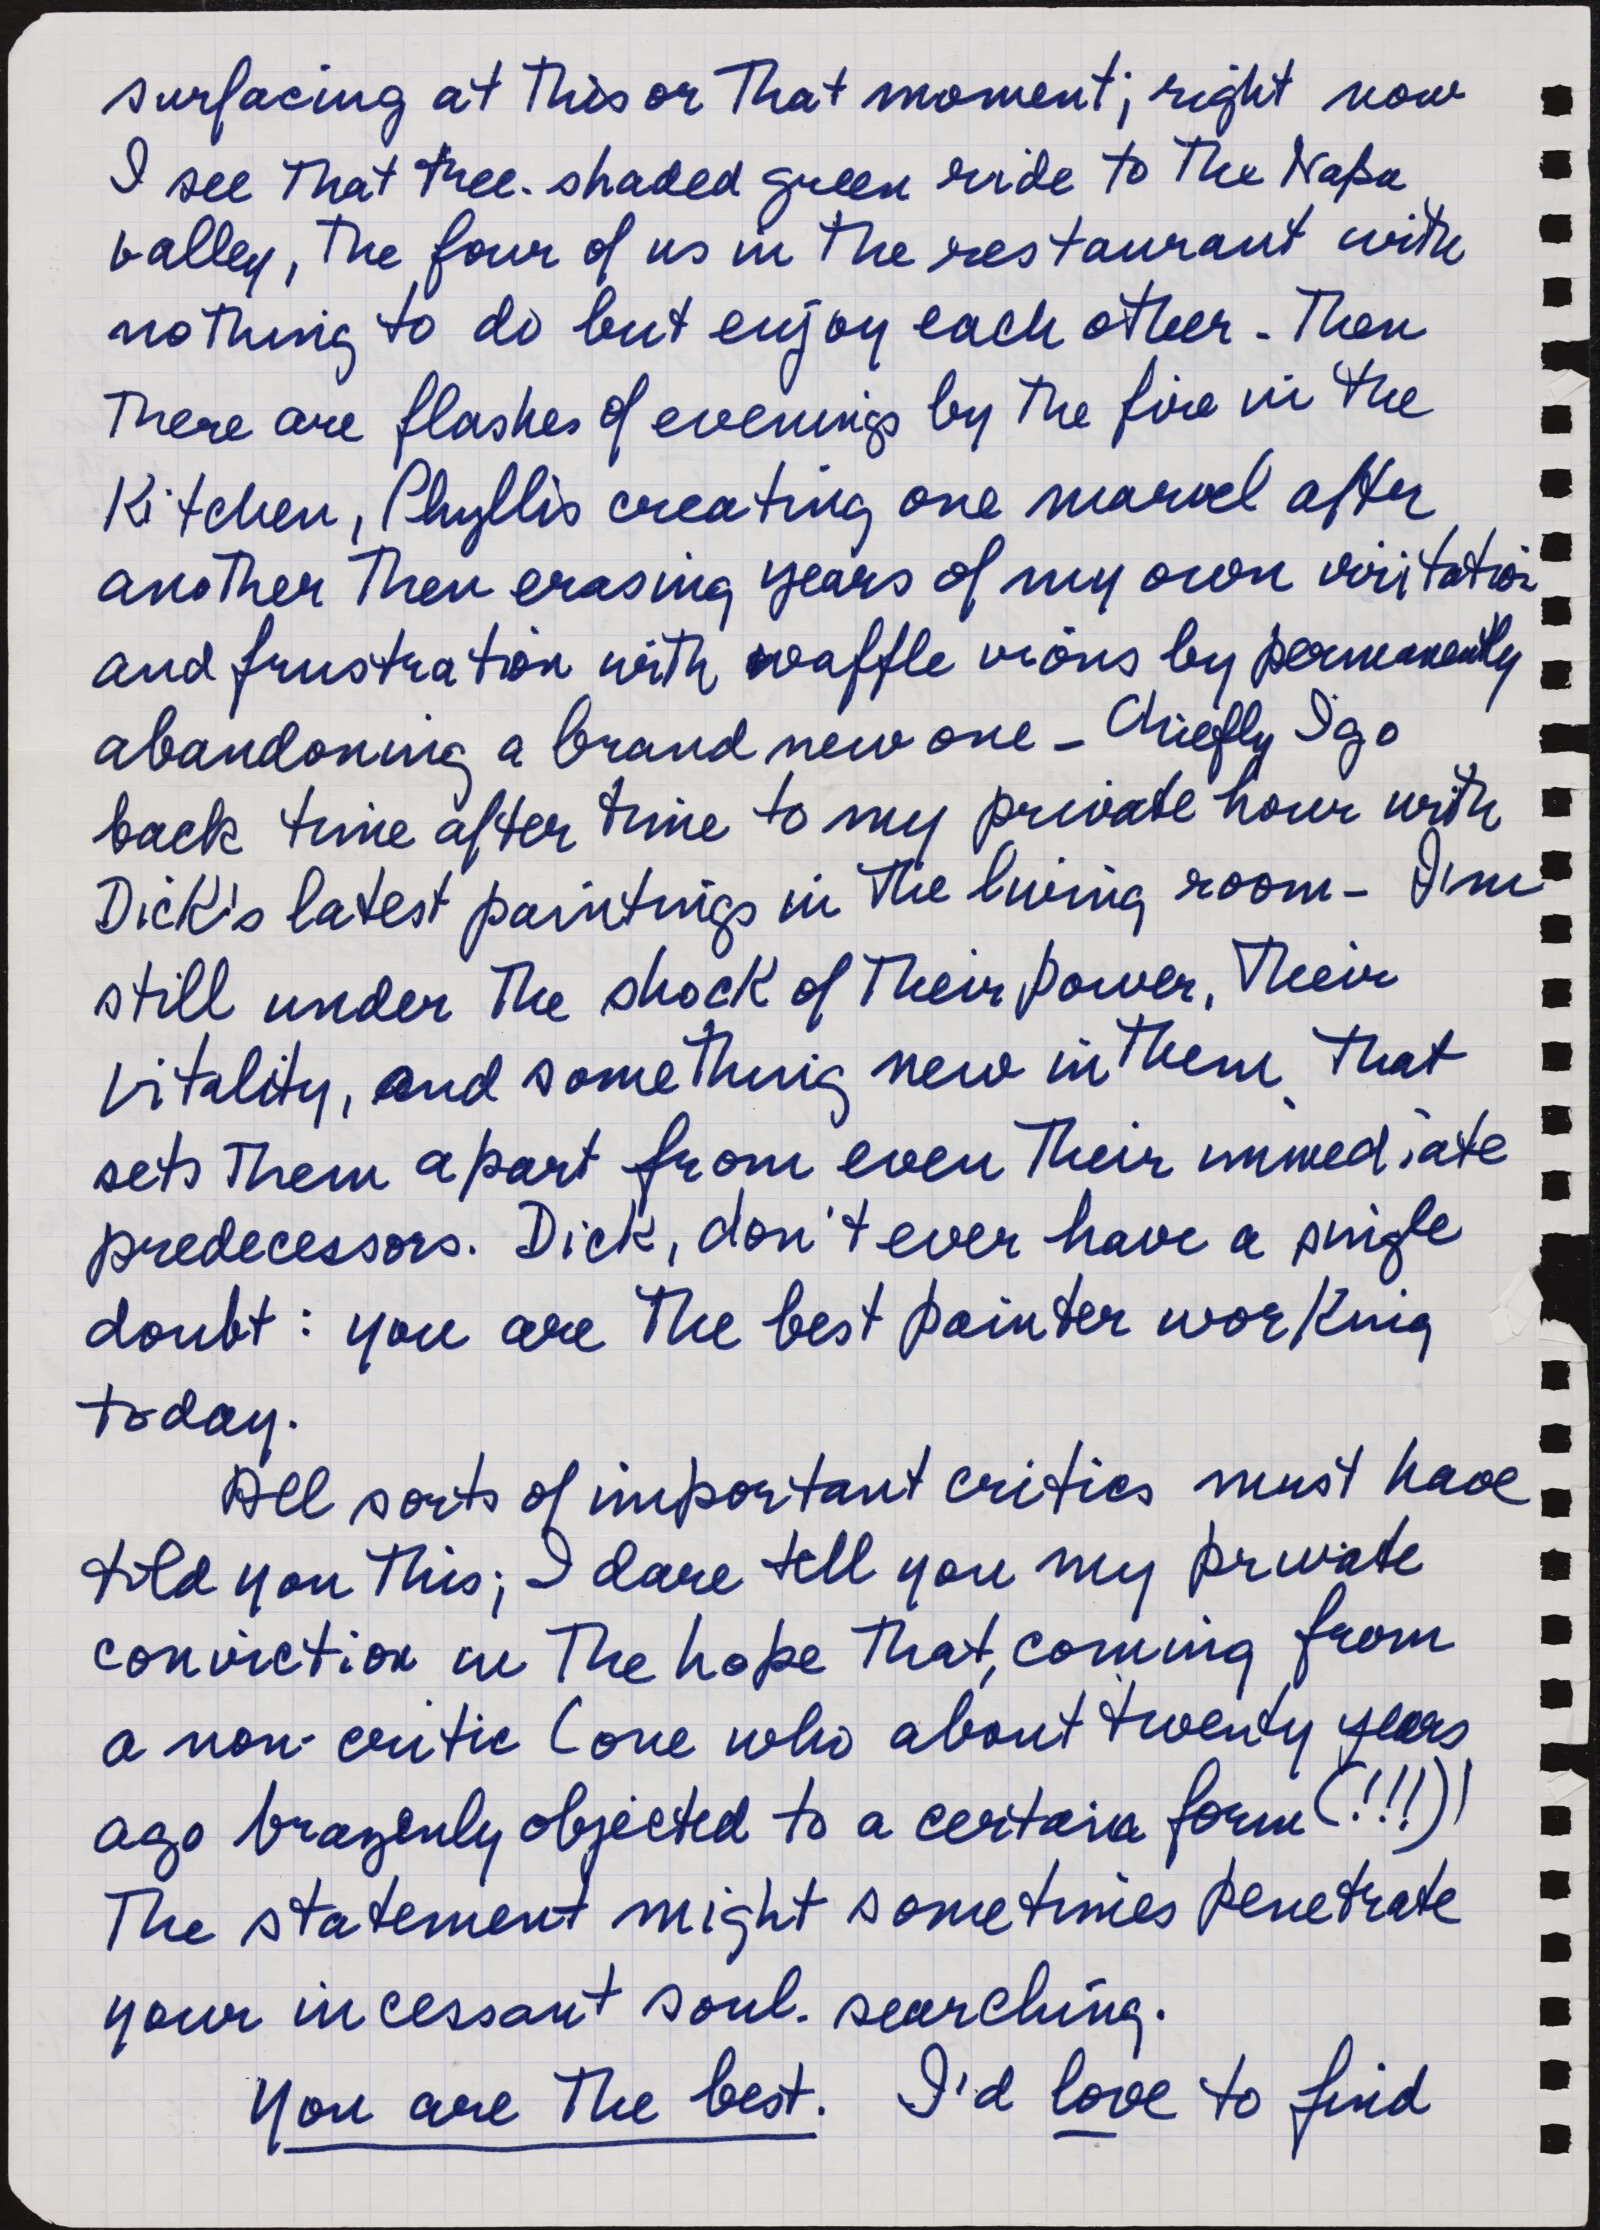 surfacing at this or that moment; right now
I see that tree-shaded green ride to the Napa
valley, the four of us in the restaurant with
nothing to do but enjoy each other - Then
there are flashes of evenings by the fire in the
Kitchen, Phyllis creating one marvel after
another then erasing years of my own irritation
and frustration with waffle irons by permanently
abandoning a brand new one - Chiefly I go
back time after time to my private hour with
Dick's latest paintings in the living room - I'm
still under the shock of their power, their
vitality, and something new in them that
sets them apart from even their immediate
predecessors. Dick, don't ever have a single
doubt: you are the best painter working
today.
All sorts of important critics must have
told you this; I dare tell you my private
conviction in the hope that, coming from
a non-critic (one who about twenty years
ago brazenly objected to a certain form (!!!))
the statement might sometimes penetrate
your incessant soul-searching.
You are the best. I'd love to find